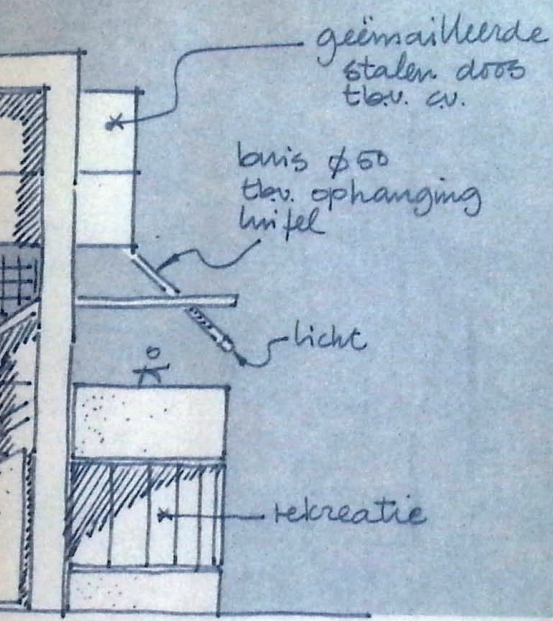 geëmailleerde
stalen doos
tbv. cv.
buis ϕ 50
tbv. ophanging
luifel
licht
rekreatie